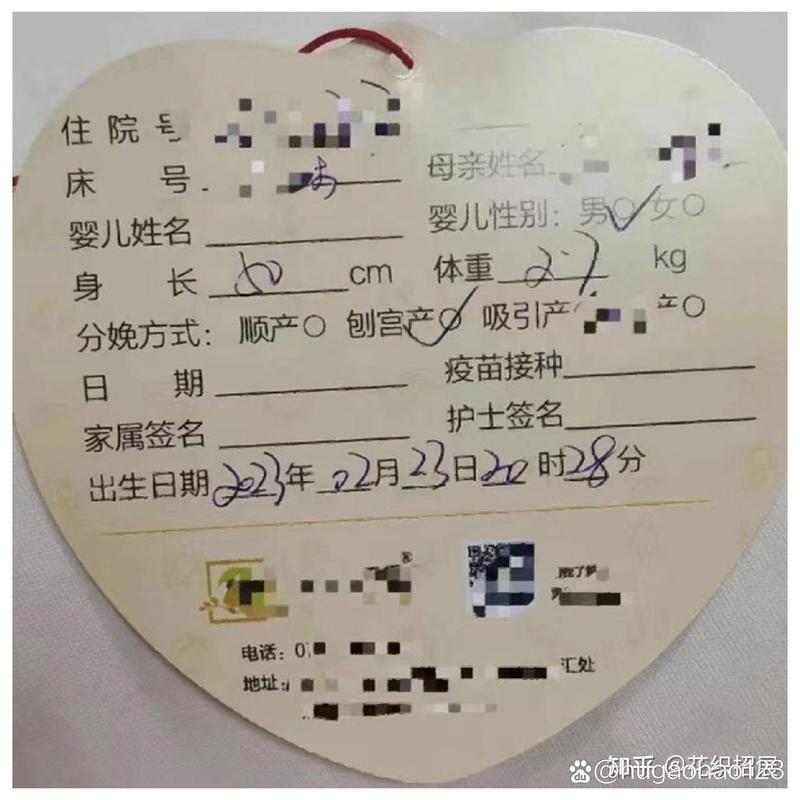 住院号
床 号
母亲姓名
婴儿姓名
婴儿性别：男○✓ 女○
身 长 50 cm 体重 2.7 kg
分娩方式： 顺产○ 刨宫产○✓ 吸引产 产○
日 期
疫苗接种
家属签名
护士签名
出生日期2023年02月23日20时28分
电话：0
地址：
汇处
知乎 @花织招展
@hugaohao123